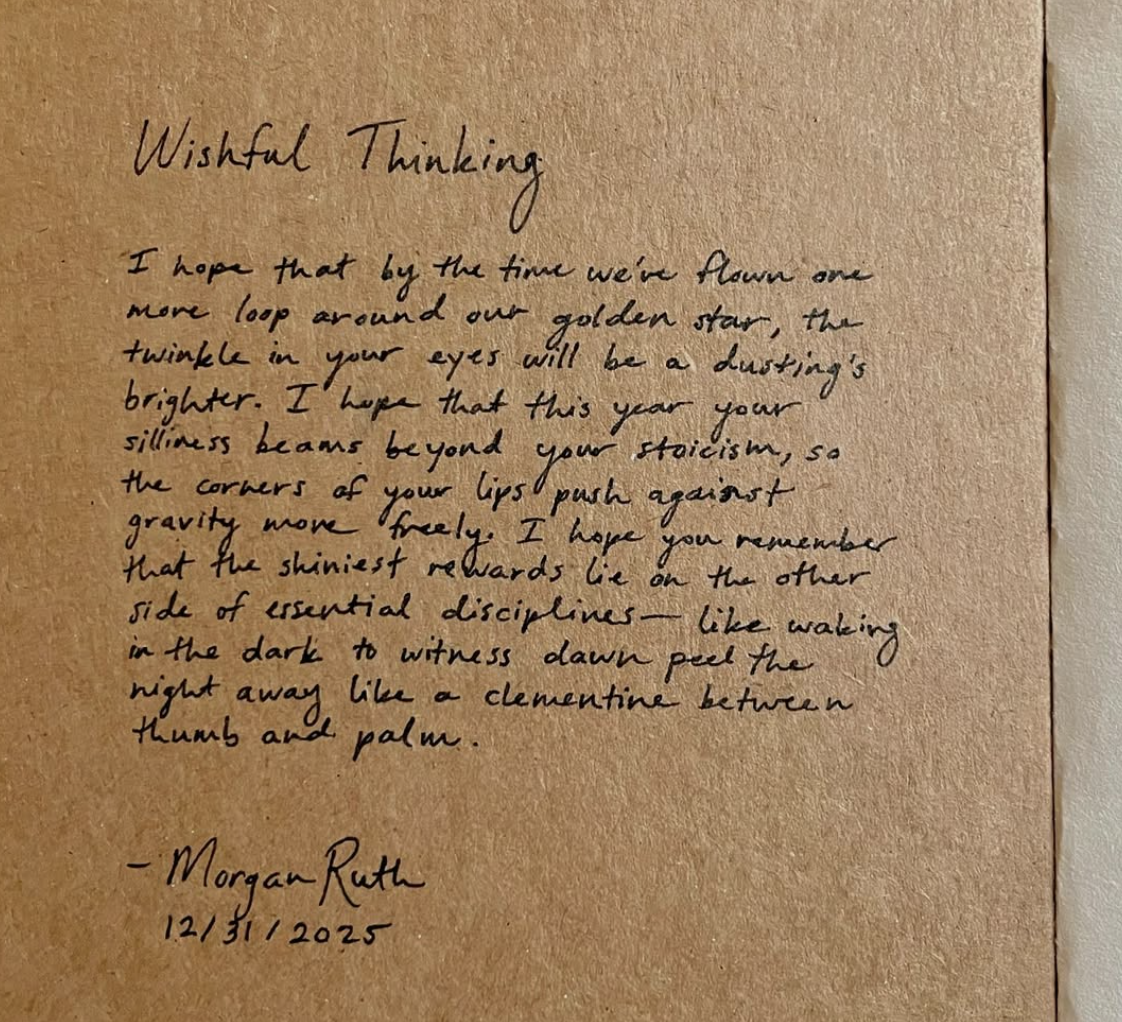 Wishful Thinking
I hope that by the time we've flown one
more loop around our golden star, the
twinkle in your eyes will be a dusting's
brighter. I hope that this year your
silliness beams beyond your stoicism, so
the corners of your lips push against
gravity more freely. I hope you remember
that the shiniest rewards lie on the other
side of essential disciplines— like waking
in the dark to witness dawn peel the
night away like a clementine between
thumb and palm.
- Morgan Ruth
12/31/2025